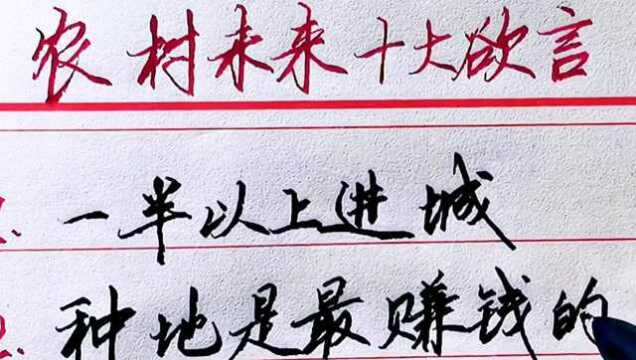 农村未来十大欲言
一半以上进城
种地是最赚钱的